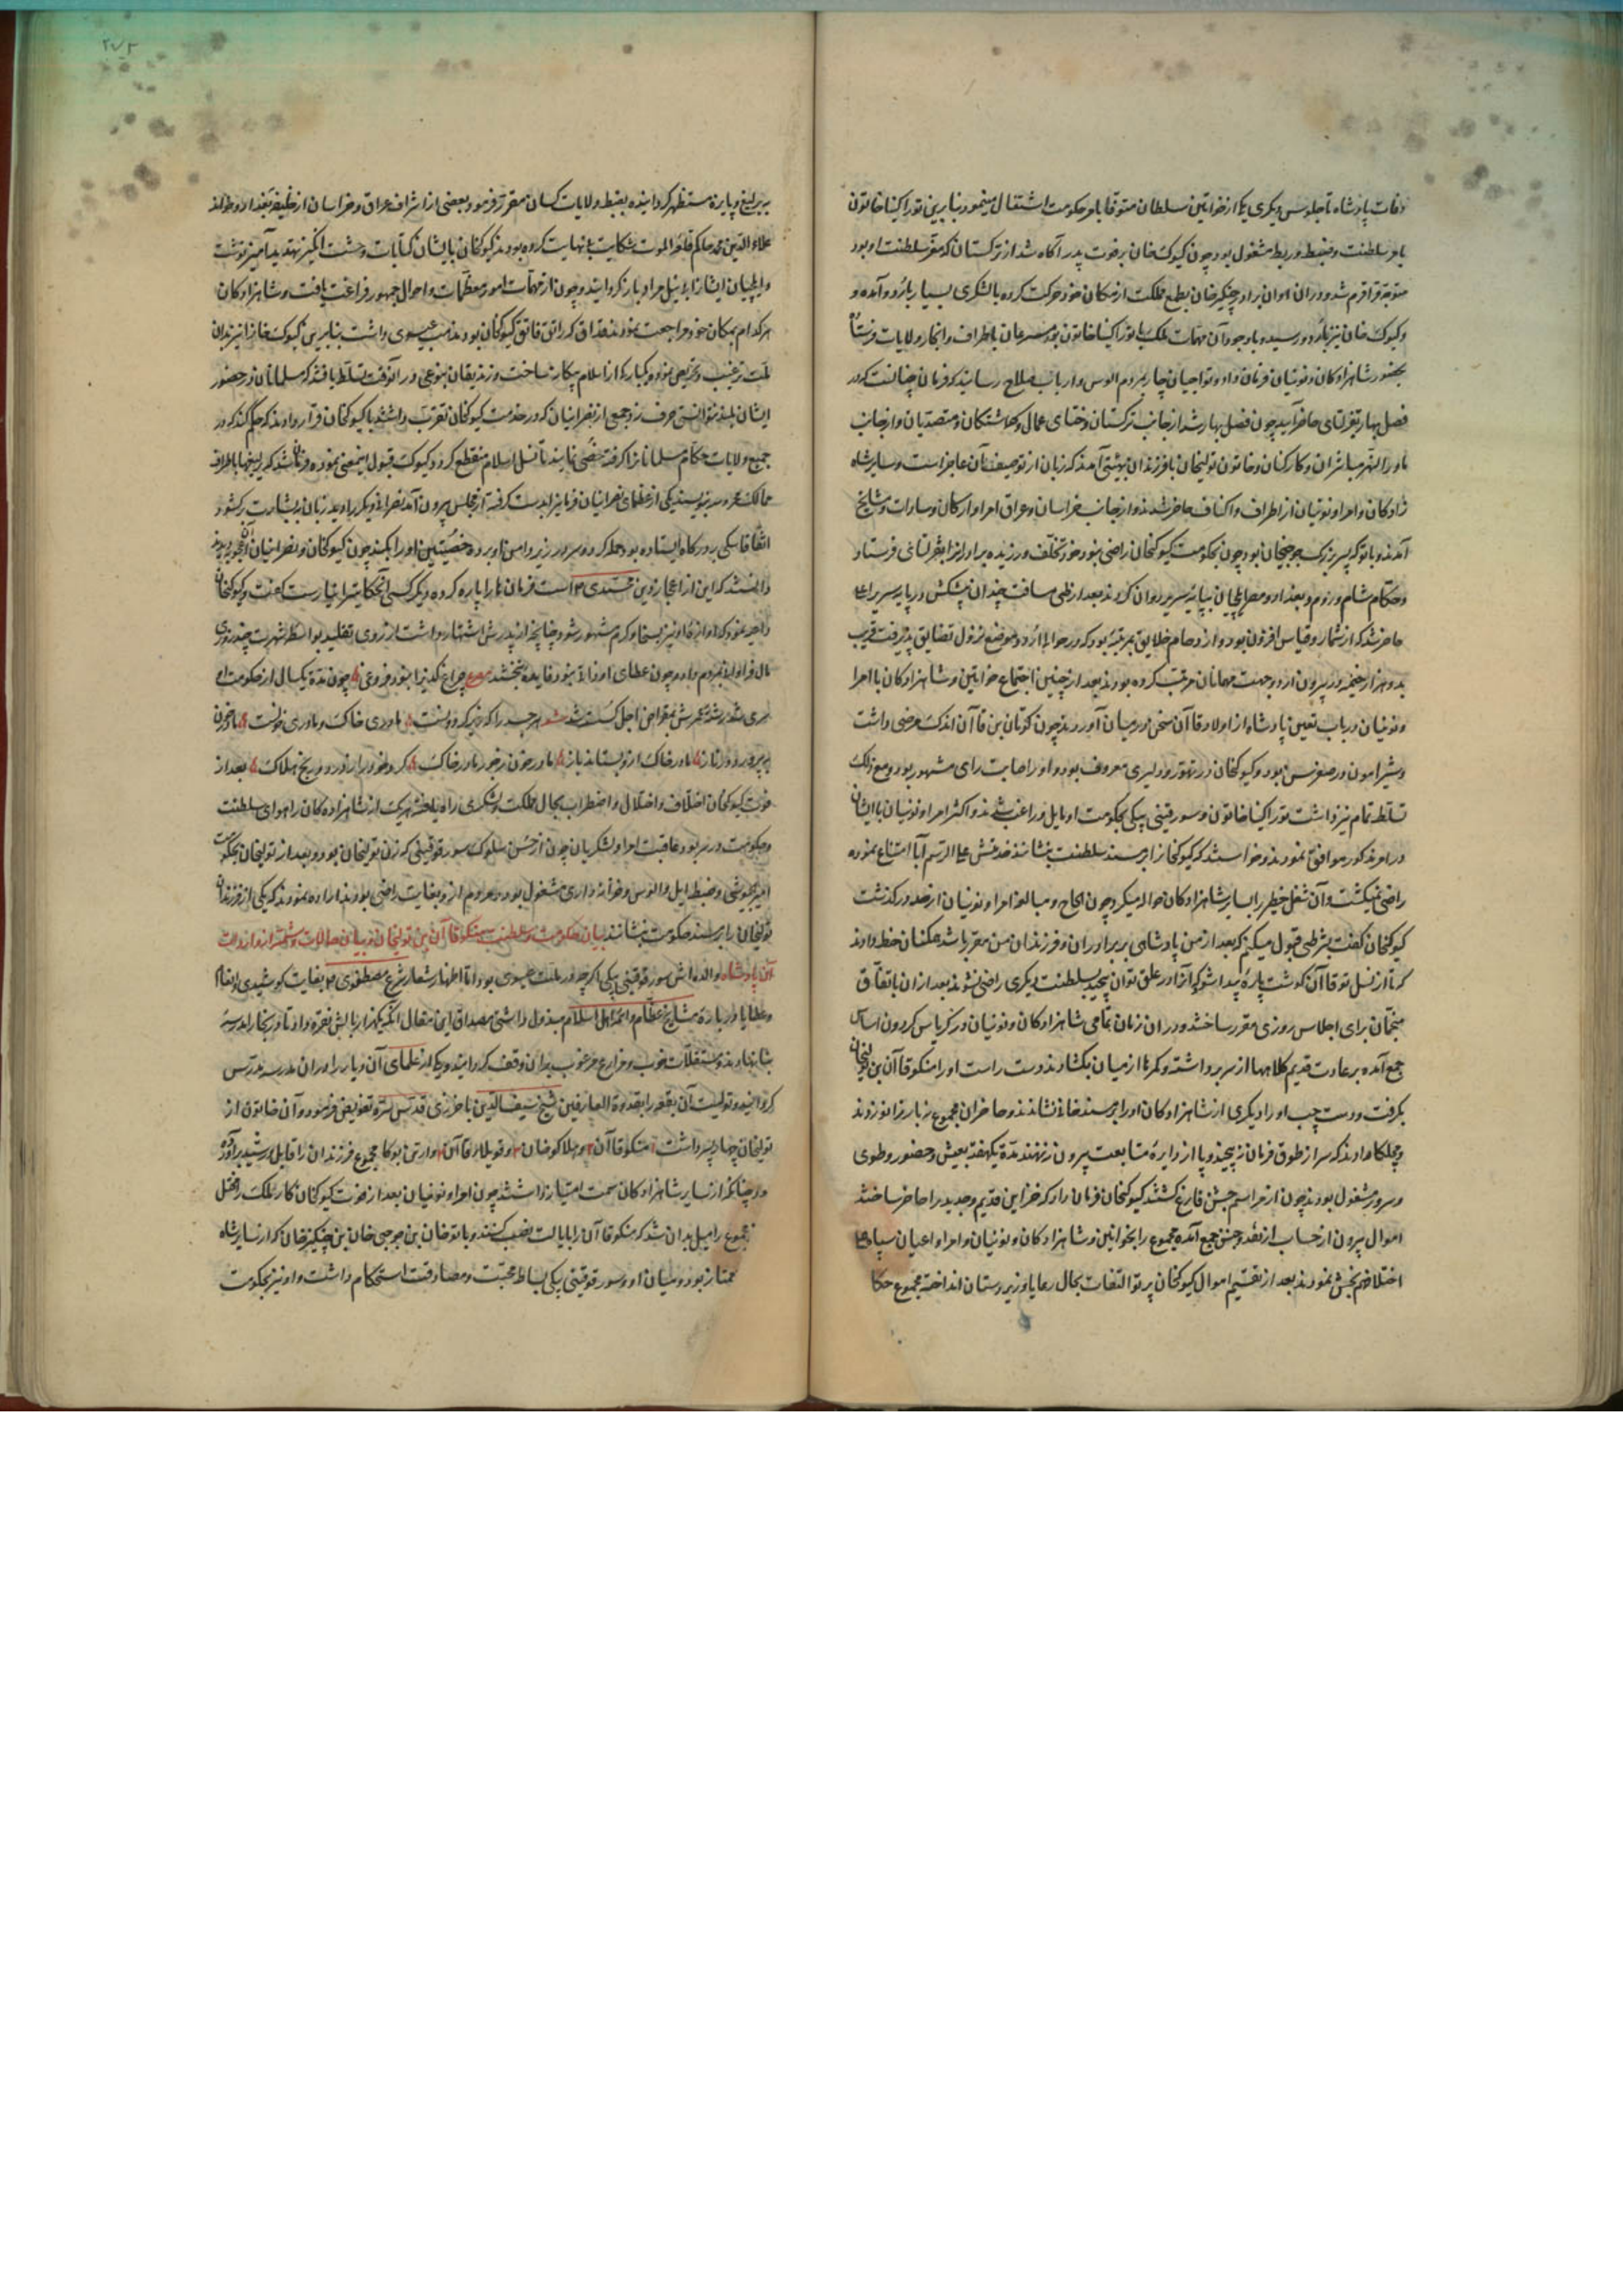 وفات پادشاه تا جلوس دیگری یکی از خواتین سلطان متوفا بامر حکومت اشتغال مینمود بنابرین توراکینا خاتون
بامر سلطنت و ضبط و ربط مشغول بود چون کیوک خان بر فوت پدر آگاه شد از ترکستان که مقر سلطنت او بود
متوجه قراقرم شد و دران اوان برادر چنگیز خان بطمع مملکت از مکان خود حرکت کرده با لشکری بسیار باردو آمده و
و کیوک خان نیز باردو رسید و باوجود آن مهمات ملک با توراکینا خاتون بود مسرعان باطراف و انحاء ولایات فرستاد
بحضور شاهزادکان و نوئینان فرمان داد و تواجیان چار بمردم الوس و ارباب صلاح رسانیدند که فرمان چنانست که در
فصل بهار بقرلتای حاضر آیند چون فصل بهار شد از جانب ترکستان و ختای عمال و کماشتکان و متصدیان و از جانب
ماوراءالنهر مباشران و کارکنان و خاتون تولیخان با فرزندان بهیئتی آمدند که زبان از توصیف آن عاجز است و سایر شاه
زادکان و امرا و نوئینان از اطراف و اکناف حاضر شدند و از جانب خراسان و عراق امرا و ارکان و سادات و مشایخ
آمدند و باتو که پسر بزرک جوجیخان بود چون بحکومت کیوکخان راضی نبود خود تخلف ورزیده برادر انرا بقرلتای فرستاد
و حکام شام و روم و بغداد و مصر ایلچیان بپایه سریر روان کردند بعد از طی مسافت چندان پیشکش در پایه سریر اعلی
حاضر شد که از شمار و قیاس افزون بود و از ازدحام خلایق بمرتبه بود که در حوالی اردو موضع نزول تضایق پذیرفت قریب
بدو هزار خیمه در بیرون اردو جهت مهمانان مرتب کرده بودند بعد از چنین اجتماع خواتین و شاهزادکان با امرا
و نوئینان در باب تعین پادشاه از اولاد قاآن سخن در میان آوردند چون کوتان بن قاآن اندک مرضی داشت
و شیرامون در صغر سن بود و کیوکخان در تهور و دلیری معروف بود و او را صابت رای مشهور بود و مع ذلک
تسلط تمام نیز داشت توراکینا خاتون و سورقیتی بیکی بحکومت او مایل و راغب شدند و اکثر امرا و نوئینان با ایشان
در امر مذکور موافقت نمودند و خواستند که کیوکخانرا بر مسند سلطنت بنشانند خدمتش علی الرسم اباء امتناع نموده
راضی نمیکشت و آن شغل خطیر را بسایر شاهزادکان حواله میکرد چون الحاح و مبالغه امرا و نوئینان از حد در کذشت
کیوکخان کفت بشرطی قبول میکنم که بعد از من پادشاهی بر برادران و فرزندان من مقرر باشد همکنان خط دادند
که تا از نسل تو قاآن کوشت پاره پیدا شود که انرا در علق توان پیچید بسلطنت دیکری راضی نشوند بعد ازان باتفاق
منجمان برای اجلاس روزی مقرر ساختند و دران زمان تمامی شاهزادکان و نوئینان در کریاس کردون اساس
جمع آمده بر عادت قدیم کلاهها از سر برداشته و کمرها از میان بکشادند دست راست او را منکوقاآن بن تولیخان
بکرفت و دست چپ او را دیکری از شاهزادکان او را بر مسند خانی نشاندند و حاضران مجموع نه بار زانو زدند
و مچلکا دادند که سر از طوق فرمان نه پیچند و پا از دایره متابعت بیرون ننهند مدة یکهفته بعیش و حضور و طوی
و سرور مشغول بودند چون از مراسم جشن فارغ کشتند کیوکخان فرمان داد که خزاین قدیم و جدید را حاضر ساختند
اموال بیرون از حساب از نقد و جنس جمع آمده مجموع را بخواتین و شاهزادکان و نوئینان و امرا و اعیان سپاه علی
اختلافهم بخش نمودند بعد از تقسیم اموال کیوکخان پرتو التفات بحال رعایا و زیردستان انداخته مجموع حکام
به یرلیغ و پایزه مستظهر کردانیده بضبط ولایات کسان مقرر فرمود و بعضی از اشراف عراق و خراسان از خلیفه بغداد و خداوند
علاء الدین محمد حاکم قلعه الموت شکایت بی نهایت کرده بودند کیوکخان بایشان کتابات وحشت انکیز تهدید آمیز نوشت
و ایلچیان ایشانرا بی نیل مراد باز کردانید و چون از مهمات امور معظمات و احوال جمهور فراغت یافت و شاهزادکان
هر کدام بمکان خود مراجعت نمودند قداق که راتق فاتق کیوکخان بود مذهب عیسوی داشت بنابرین کیوک خانرا نیز بدان
ملت ترغیب و تحریص نمود و یکبارکی از اسلام بیکانه ساخت و زندیقان بنوعی دران وقت تسلط یافتند که مسلمانان در حضور
ایشان بلند نتوانستی حرف زد و جمعی از نصرانیان که در خدمت کیوکخان تقرب داشتند با کیوکخان قرار دادند که حکم کند که در
جمیع ولایات حکام مسلمانانرا کرفته خصی نمایند تا نسل اسلام منقطع کردد کیوک قبول اینمعنی نموده فرمان شد که یرلیغها باطراف
ممالک محروسه بنویسند یکی از عظمای نصرانیان فرمانرا بدست کرفته از مجلس بیرون آمد نصرانی دیکر را دید زبان ببشارت بکشود
اتفاقا سکی بر درکاه ایستاده بود حمله کرد و سر در زیر دامن او برده خصیتین او را بکند چون کیوکخان و نصرانیان آنحال بدیدند
دانستند که این از اعجاز دین محمدی است فرمان ها را پاره کرده دیکر کسی آن حکایترا نیارست کفت و کیوکخان
داعیه نمود که اوازه او نیز بسخا و کرم مشهور شود چنانچه از پدرش اشتهار داشت از روی تقلید بواسطه شهرت چند روزی
مال فراوان بمردم داد و چون عطای او ذاتی نبود فایده نبخشد مصرع چراغ کذب را نبود فروغی چون مدة یکسال از حکومت او
سپری شد رشته عمرش بمقراض اجل کسسته شد هر چه را که دیر کرد و نشست مادری خاک و مادری خونست مادر خون
بپرورد در ناز مادر خاک ازو بستاند باز مادر خون بخورد مادر خاک کرد خود را بزور و رنج هلاک بعد از
فوت کیوکخان اختلاف و اختلال و اضطراب بحال مملکت و لشکری راه یافته هریک از شاهزادکان را هوای سلطنت
و حکومت در سر بود عاقبت امرا و لشکریان چون از حسن سلوک سورقوقیتی که زن تولیخان بود و بعد از تولیخان بحکومت
امیر جیوشی و ضبط ایل و الوس و خزانه داری مشغول بود و مردم ازو بغایت راضی بودند اراده نمودند که یکی از فرزندان
تولیخان را بر مسند حکومت بنشانند بیان حکومت و سلطنت منکوقاآن بن تولیخان و بیان حالات و شمه از اندولت
آن پادشاه والده اش سورقوقیتی بیکی اکرچه در ملت عیسوی بود اما اظهار شعار شرع مصطفوی بغایت کوشیدی و انعام
و عطایا در باره مشایخ عظام و ائمه اهل اسلام مبذول داشتی مصداق این مقال انکه یکهزار بالش نقره داد تا در بخارا مدرسه
بنا نهادند و مستغلات خوب و مزارع مرغوب بدان وقف کردانیدند و یکی از علمای آن دیار را دران مدرسه مدرس
کردانید و تولیت آن بقعه را بقدوة العارفین شیخ سیف الدین باخرزی قدس سره تفویض فرمود و آن خاتون از
تولیخان چهار پسر داشت منکوقاآن و هلاکوخان و قوبیلا قاآن و اریق بوکا مجموع فرزندان را قابل و رشید برآورده
بود چنانکه از سایر شاهزادکان سمت امتیاز داشتند چون امرا و نوئینان بعد از فوت کیوکخان کار ملک را مختل
مجموع را میل بدان شد که منکوقاآن را بایالت نصب کنند و باتوخان بن جوجی خان بن چنکیز خان که از سایر شاه
ممتاز بود و میان او و سورقوقیتی بیکی بساط محبت و مصادقت استحکام داشت و او نیز بحکومت